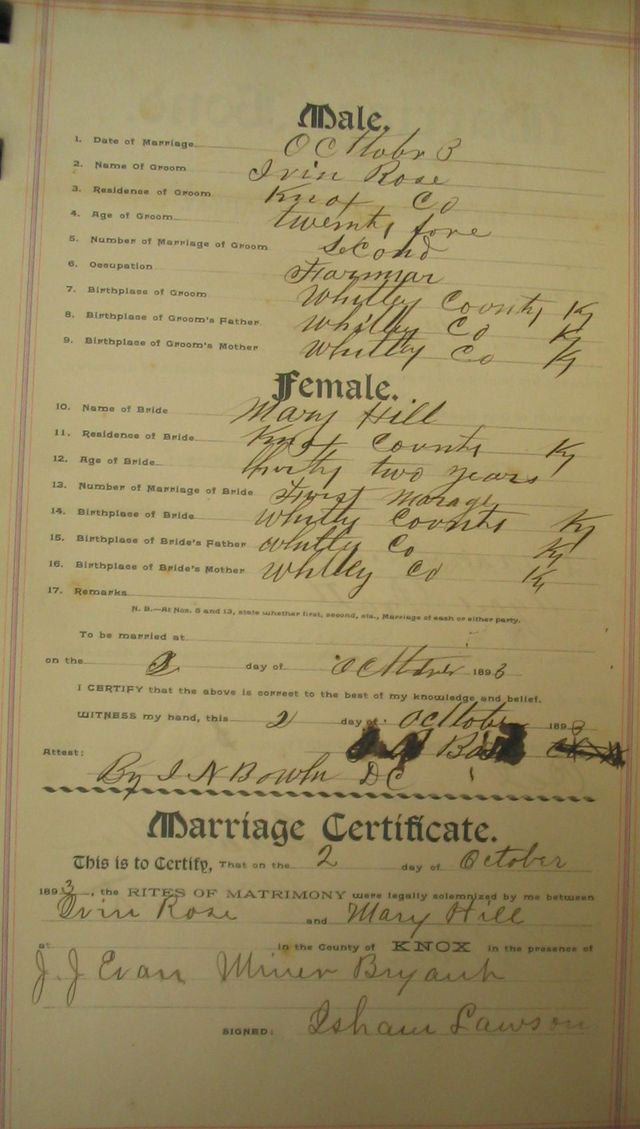 Male.
1. Date of Marriage Octtobr 3
2. Name Of Groom Irvin Rose
3. Residence of Groom Knox Co
4. Age of Groom twenty fore
5. Number of Marriage of Groom Second
6. Occupation Farmmar
7. Birthplace of Groom Whitley County Ky
8. Birthplace of Groom's Father Whitley Co Ky
9. Birthplace of Groom's Mother Whitley Co Ky
Female.
10. Name of Bride Mary Hill
11. Residence of Bride Knox County Ky
12. Age of Bride thirty two years
13. Number of Marriage of Bride First Marage
14. Birthplace of Bride Whitly County Ky
15. Birthplace of Bride's Father Whitley Co Ky
16. Birthplace of Bride's Mother Whitley Co Ky
17. Remarks
N. B.—At Nos. 5 and 13, state whether first, second, etc., Marriage of each or either party.
To be married at
on the day of 1893
I CERTIFY that the above is correct to the best of my knowledge and belief.
WITNESS my hand, this 2 day of Octtober 1893
Attest:
By I N Bowlin DC
Marriage Certificate.
This is to Certify, That on the 2 day of October
1893, the RITES OF MATRIMONY were legally solemnized by me between
Irvin Rose and Mary Hill
at in the County of KNOX in the presence of
J. J Evan Miner Bryant
SIGNED: Isham Lawson